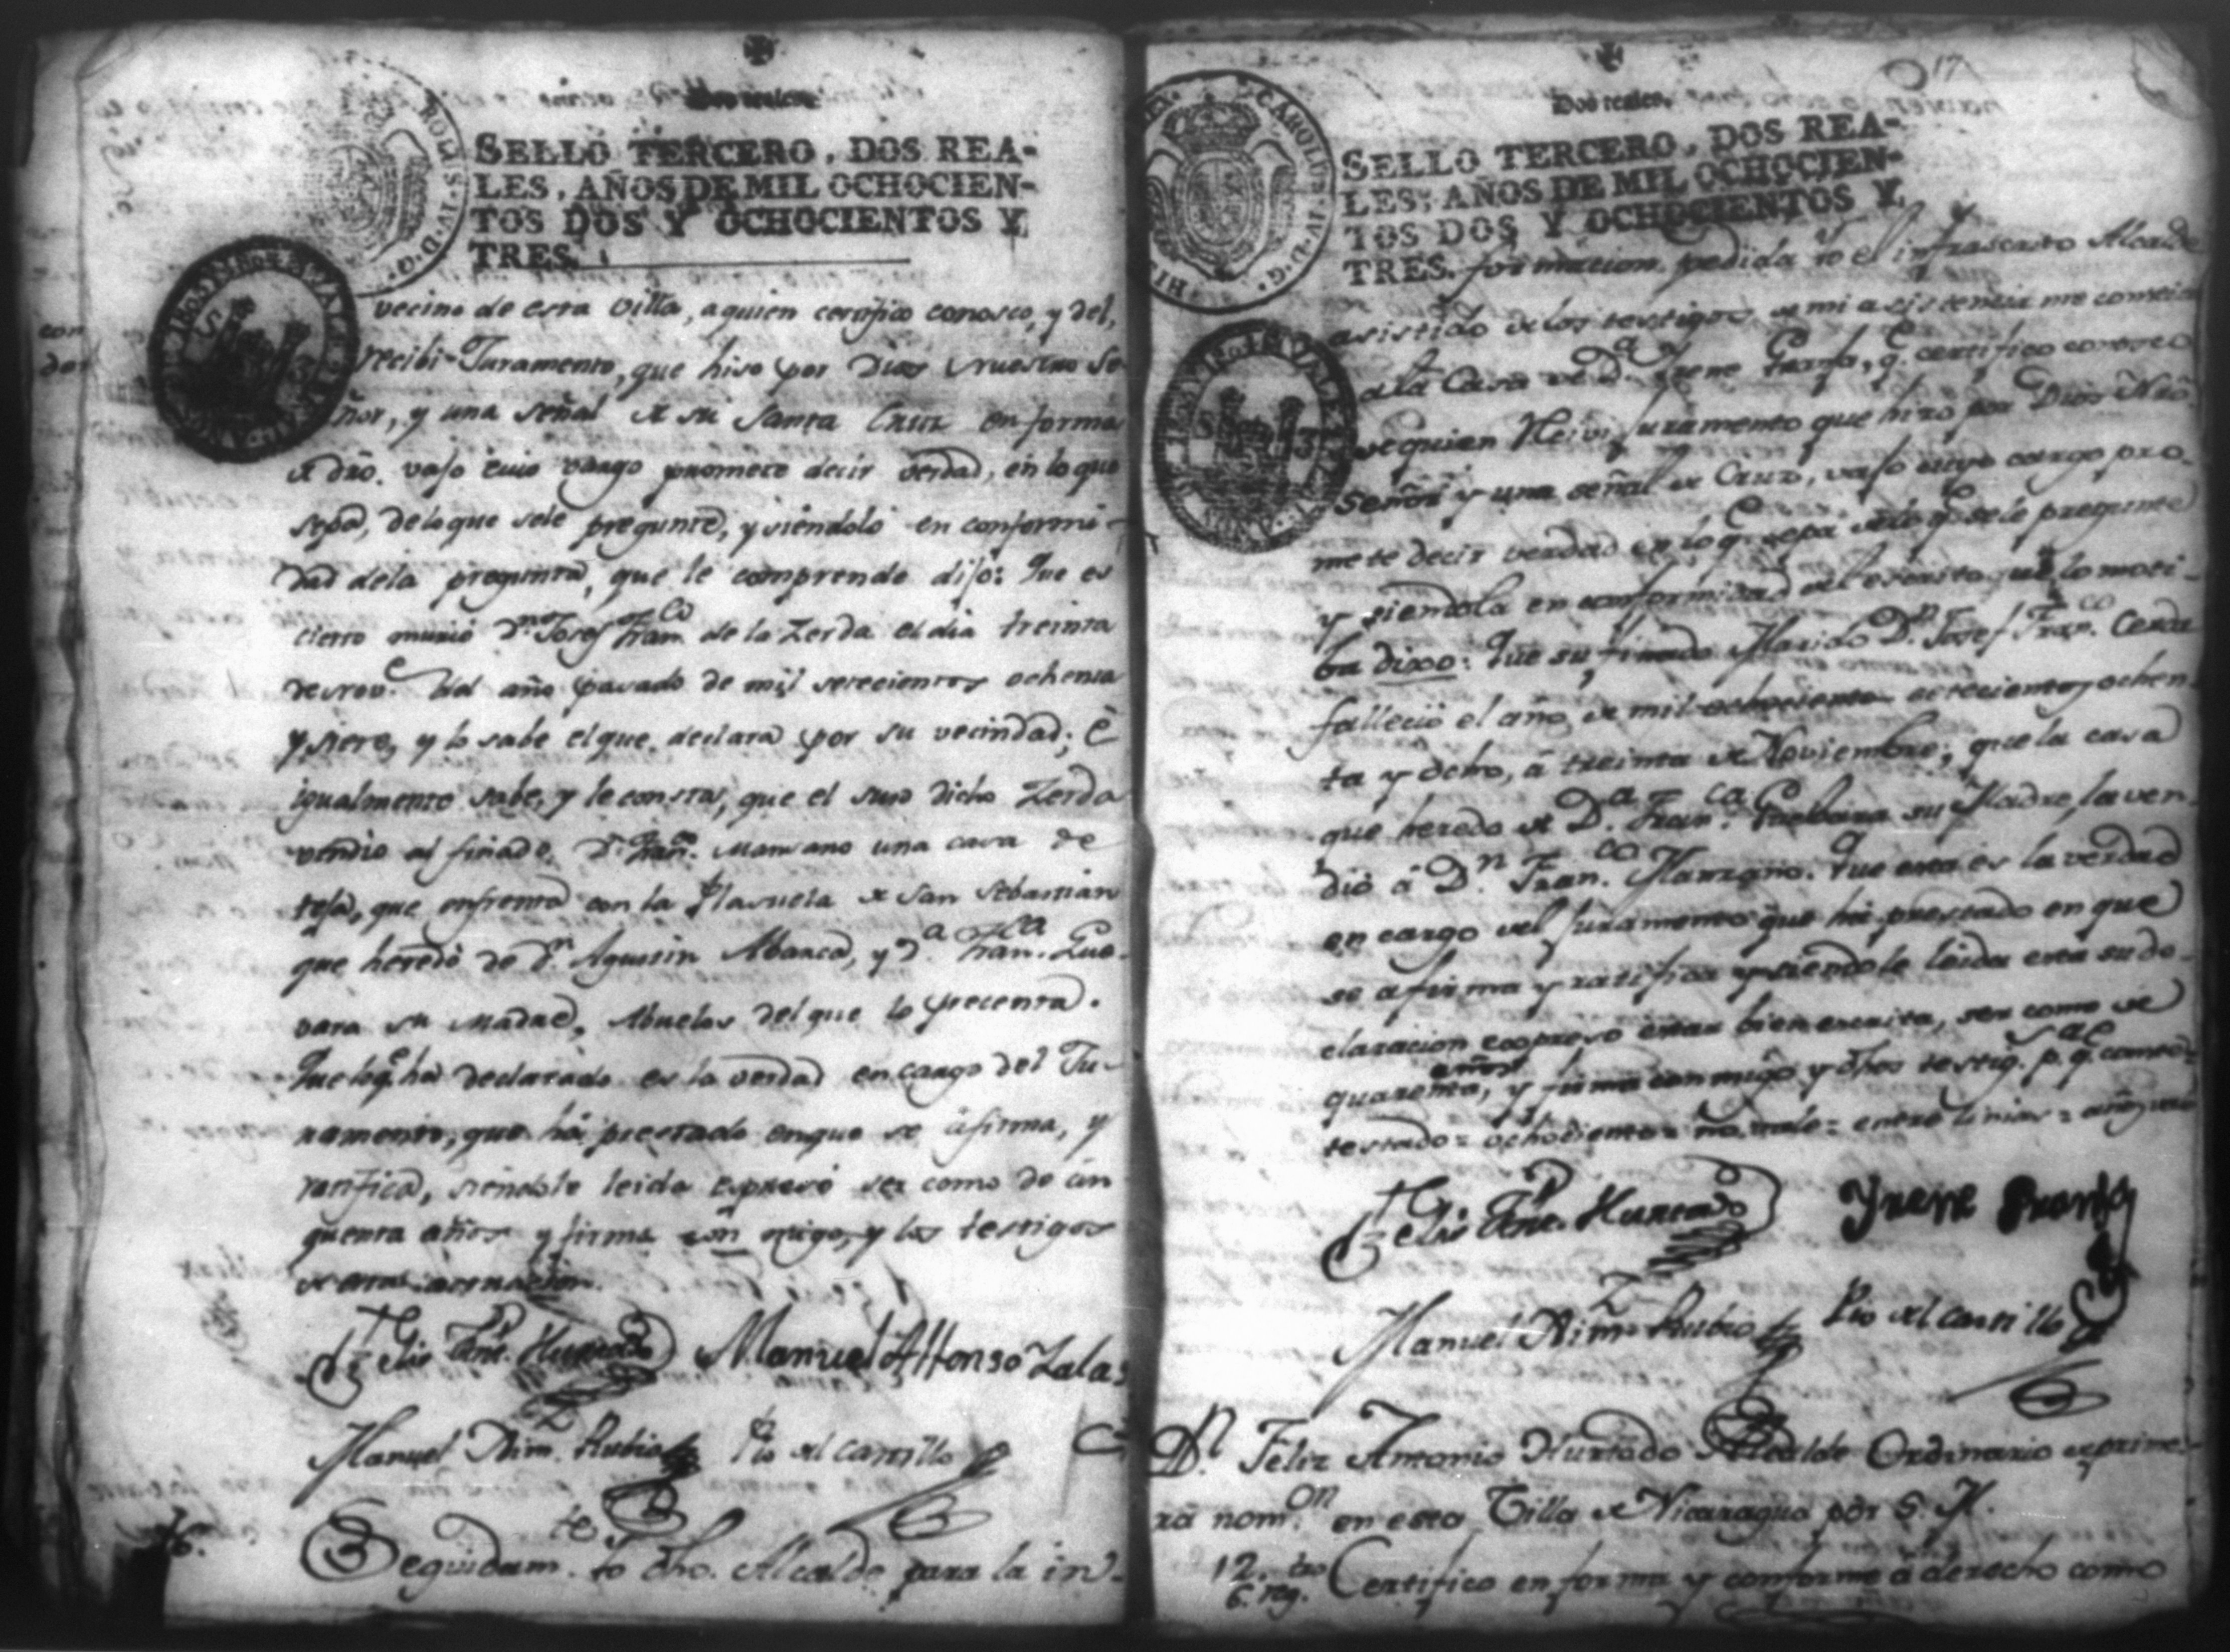 Dos reales.
SELLO TERCERO, DOS REA-
LES, AÑOS DE MIL OCHOCIEN-
TOS DOS Y OCHOCIENTOS Y
TRES.
CAROLUS·IV·D·G·
vecino de esta Villa, a quien certifico conosco, y del,
recibi Juramento, que hiso por Dios nuestro Se
ñor, y una señal de su Santa Cruz en forma
de dro. vajo cuio cargo promete decir verdad, en lo que
sepa, de lo que sele pregunte, y siendolo en conformi-
dad dela pregunta, que le comprende dijo: Que es
cierto murió Dn. Josef Franco. de la Zerda el dia treinta
de Nove. del año pasado de mil setecientos ochenta
y siete, y lo sabe el que declara por su vecindad; é
igualmente sabe, y le consta, que el suso dicho Zerda
vendio al finado Dn. Fran. Mansano una casa de
teja, que enfrenta con la Plasuela de San Sebastian
que heredó de Dn. Agustin Abarca, y Da. Franca. Gue-
vara su Madre, Abuelos del que lo precenta.
Que loq. ha declarado es la verdad en cargo del Ju-
ramento, que ha prestado enque se afirma, y
ratifica, siendole leida expresó ser como de cin
quenta años y firma con migo, y los testigos
de
Felis Anto. Hurtado Manuel Alfonso Zalas
Manuel Anto. Rubio Pio del Castillo
16.
Seguidamte. Yo dho. Alcalde para la in-
17
Dos reales.
SELLO TERCERO, DOS REA-
LES, AÑOS DE MIL OCHOCIEN-
TOS DOS Y OCHOCIENTOS Y
TRES.
CAROLUS·IV·D·G·
formacion pedida Yo el infrascrito Alcalde
asistido delos testigos de mi asistencia me constitui
a la Casa de Da. Yrene q. certifico conosco
de quien Recivi Juramento que hizo por Dios Nro.
Señor y una señal de Cruz, vajo cuyo cargo pro-
mete decir verdad en lo q. sepa delo q. sele pregunte
y siendola en conformidad del escrito que lo moti-
ba dixo: Que su finado Marido Dn. Josef Franco. Cerda
fallecio el año de mil ochociento setecientos ochen-
ta y ocho, á treinta de Noviembre; que la casa
que heredo de Da. Franca. Guebara su Madre, la ven-
dió á Dn. Franco. Manzano. Que esta es la verdad
en cargo del Juramento que ha prestado en que
se afirma y ratifica y siendole leida esta su de-
claracion expreso estar bien escrita, ser como de
quarenta años, y firma con migo y dhos testigs. p. q. conste
testado= ochociento= no vale= entre linias= años vale
Felis Anto. Hurtado Yrene
Manuel Anto. Rubio Pio del Castillo
Dn. Feliz Antonio Hurtado Alcalde Ordinario de prime-
ra nomon. en esta Villa de Nicaragua por S. M.
12. Certifico en forma y conforme á derecho como